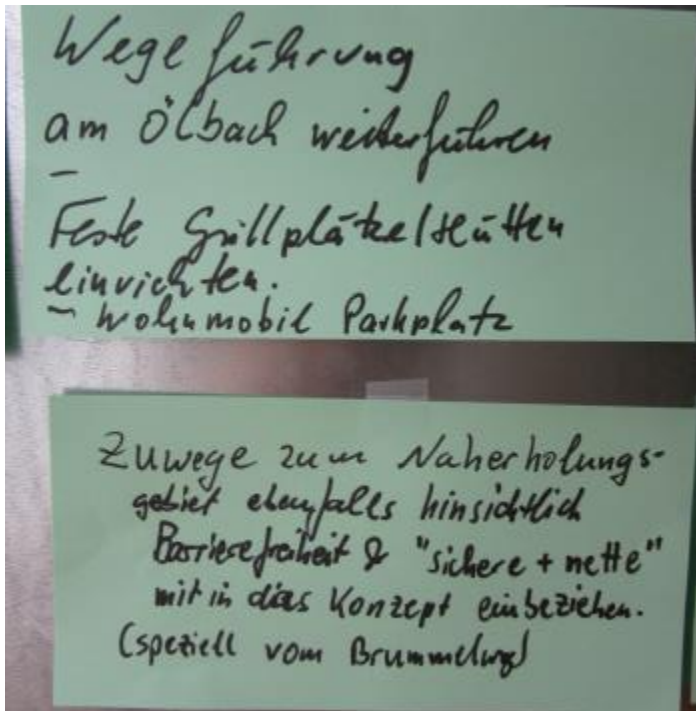 Wegeführung
am Ölbach weiterführen
–
Feste Grillplätze/Hütten
einrichten.
– Wohnmobil Parkplatz
Zuwege zum Naherholungs-
gebiet ebenfalls hinsichtlich
Barrierefreiheit & "sichere + nette"
mit in das Konzept einbeziehen.
(speziell vom Brummelweg)